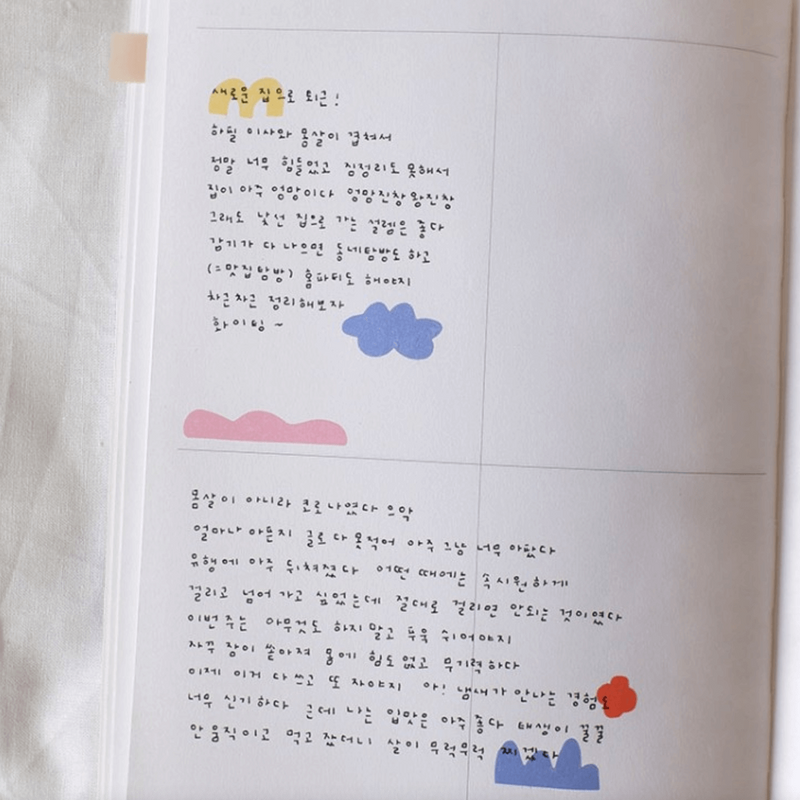 새로운 집으로 퇴근!
하필 이사와 몸살이 겹쳐서
정말 너무 힘들었고 짐정리도 못해서
집이 아주 엉망이다 엉망진창왕진창
그래도 낯선 집으로 가는 설렘은 좋다
감기가 다 나으면 동네탐방도 하고
(=맛집탐방) 홈파티도 해야지
차근차근 정리해보자
화이팅~
몸살이 아니라 코로나였다 으악
얼마나 아픈지 글로 다 못적어 아주 그냥 너무 아팠다
유행에 아주 뒤쳐졌다 어떤 때에는 속시원하게
걸리고 넘어 가고 싶었는데 절대로 걸리면 안되는 것이였다
이번주는 아무것도 하지말고 푸욱 쉬어야지
자꾸 잠이 쏟아져 몸에 힘도 없고 무기력하다
이제 이거 다 쓰고 또 자야지 아! 냄새가 안나는 경험도
너무 신기하다 근데 나는 입맛은 아주 좋다 태생이 꿀꿀
안 움직이고 먹고 잤더니 살이 무럭무럭 찌겠다